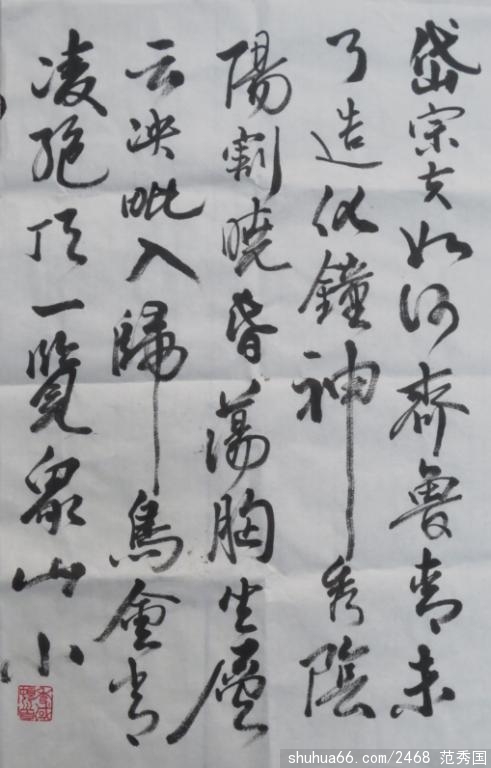 岱宗夫如何齊魯青未
了造化鐘神秀陰
陽割曉昏蕩胸生層
云决毗入歸鳥會当
凌絕顶一覽眾山小
shuhua66.com/2468 范秀国